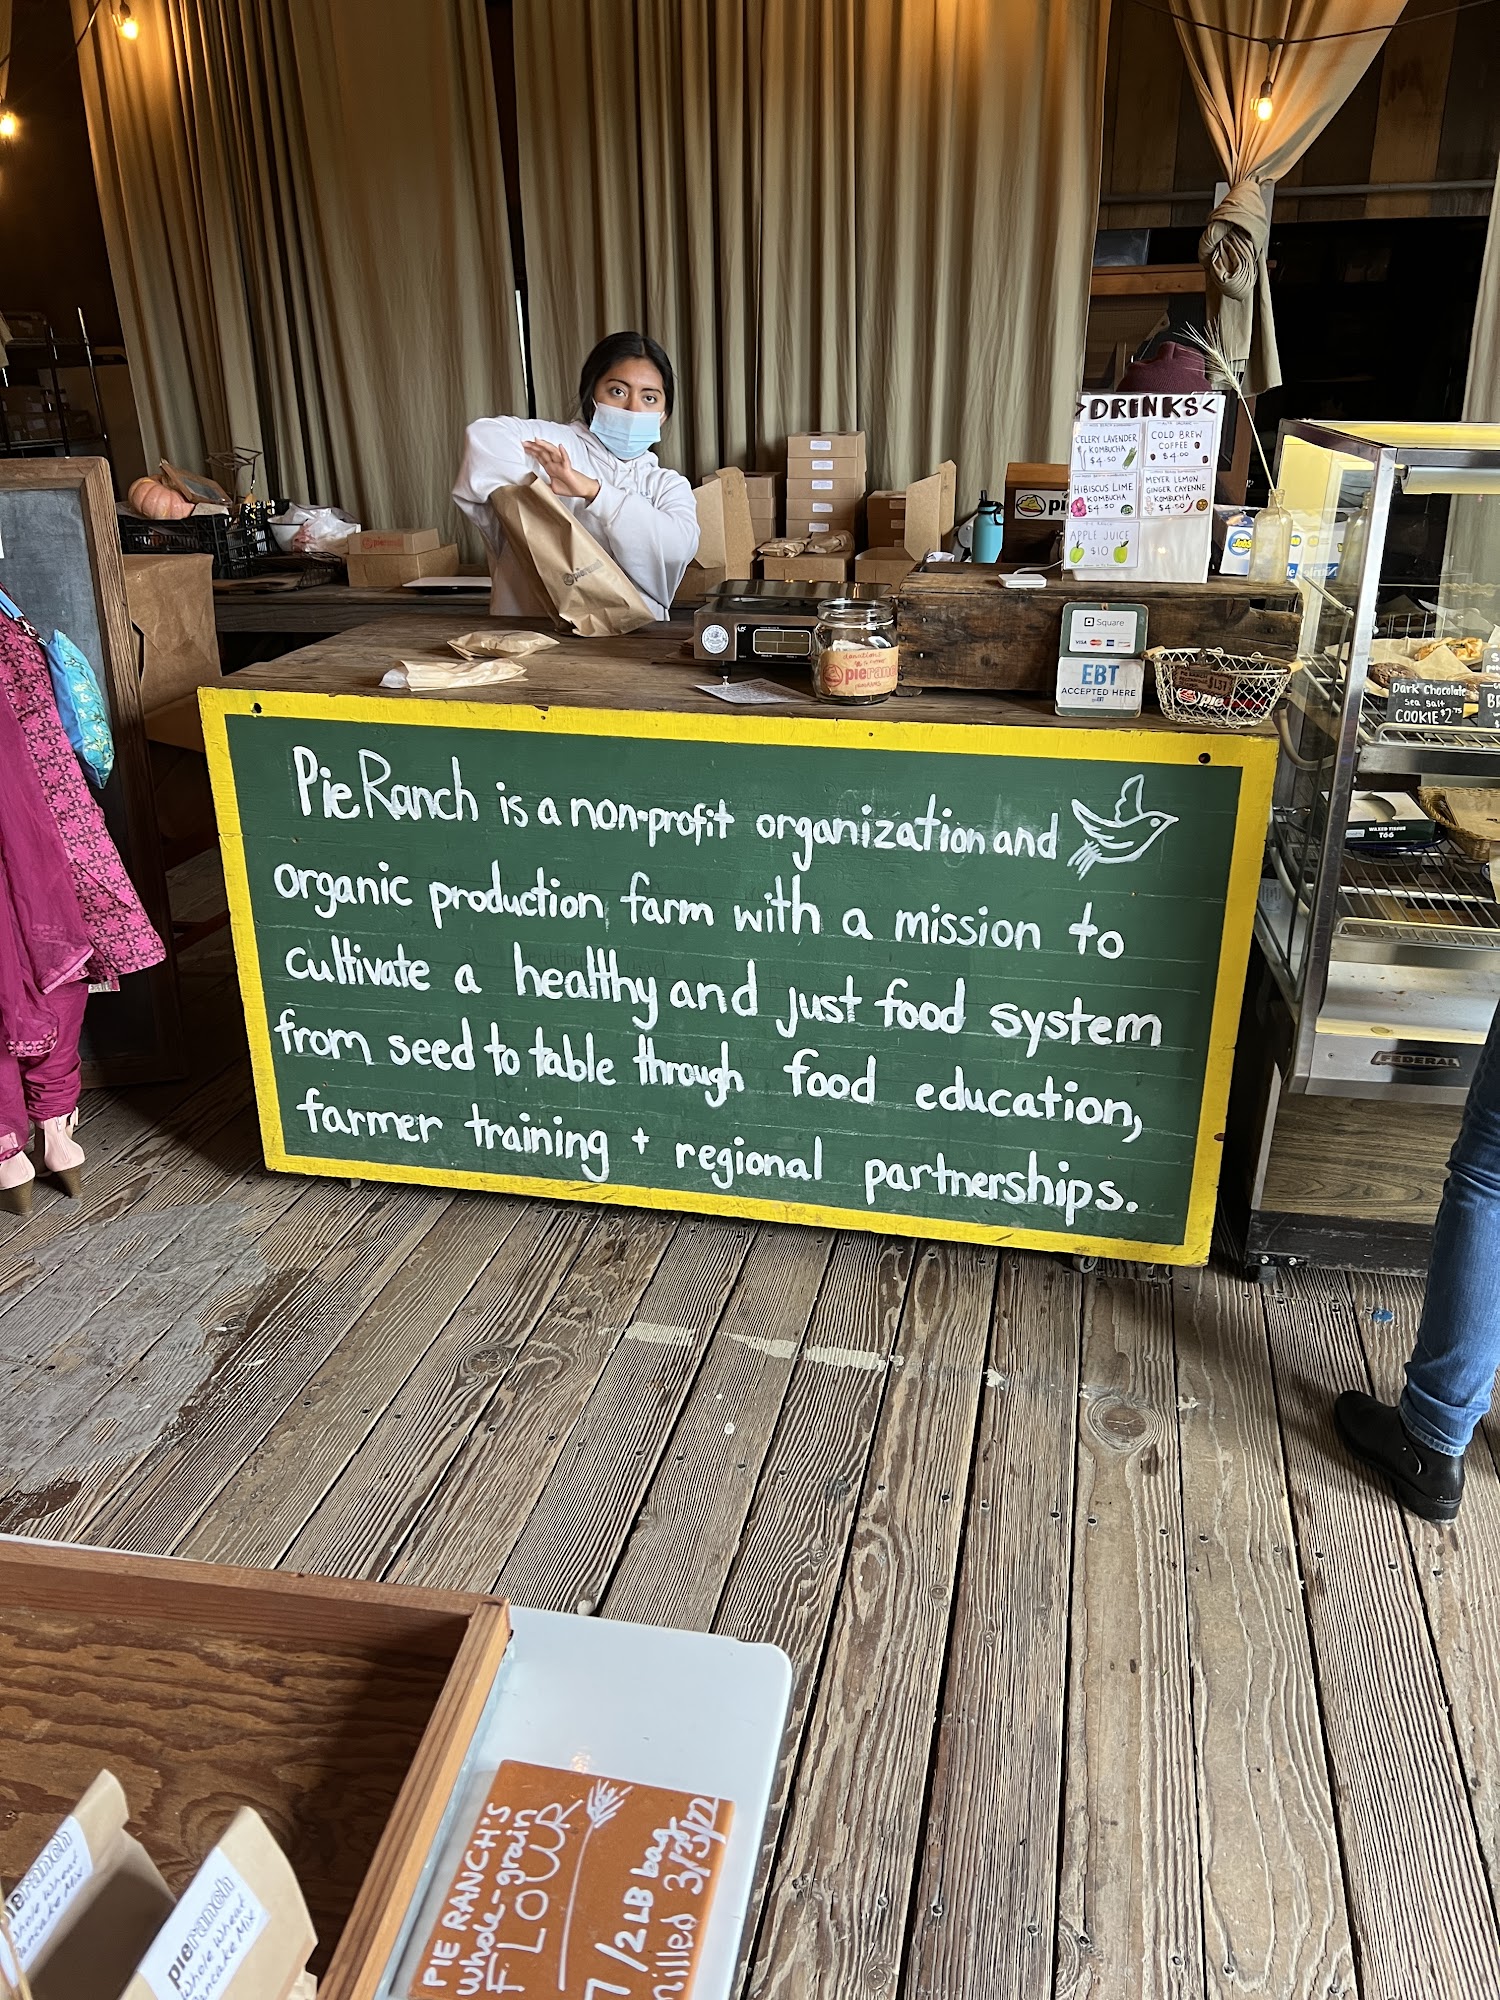 >DRINKS<
CELERY LAVENDER
KOMBUCHA
$4.50
COLD BREW
COFFEE
$4.00
HIBISCUS LIME
KOMBUCHA
$4.50
MEYER LEMON
GINGER CAYENNE
KOMBUCHA
$4.50
APPLE JUICE
$10
Square
VISA
EBT
ACCEPTED HERE
donations
pieranch
pieranch
Dark Chocolate
sea salt
COOKIE $2.75
WAXED TISSUE
T66
FEDERAL
Pie Ranch is a non-profit organization and
organic production farm with a mission to
cultivate a healthy and just food system
from seed to table through food education,
farmer training + regional partnerships.
PIE RANCH'S
Whole-grain
FLOUR
7/2LB bag
milled 3/3/22
pieranch
Whole Wheat
Pancake Mix
pieranch
Whole Wheat
Pancake Mix